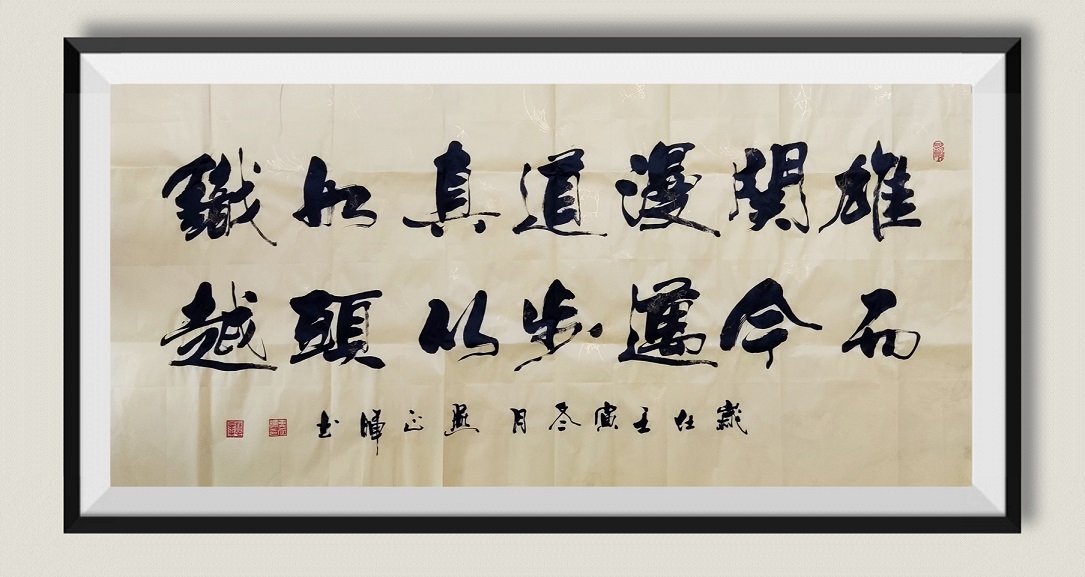 雄關漫道真如鐵
而今邁步从頭越
歲在壬寅冬月正暉書